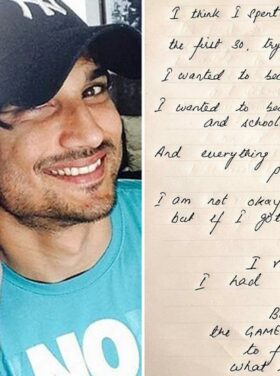 NO
I think I spent
the first 30, try
I wanted to be
I wanted to be
and school
And everything
I am not okay
but if I got
I
I had
the GAME
to
what